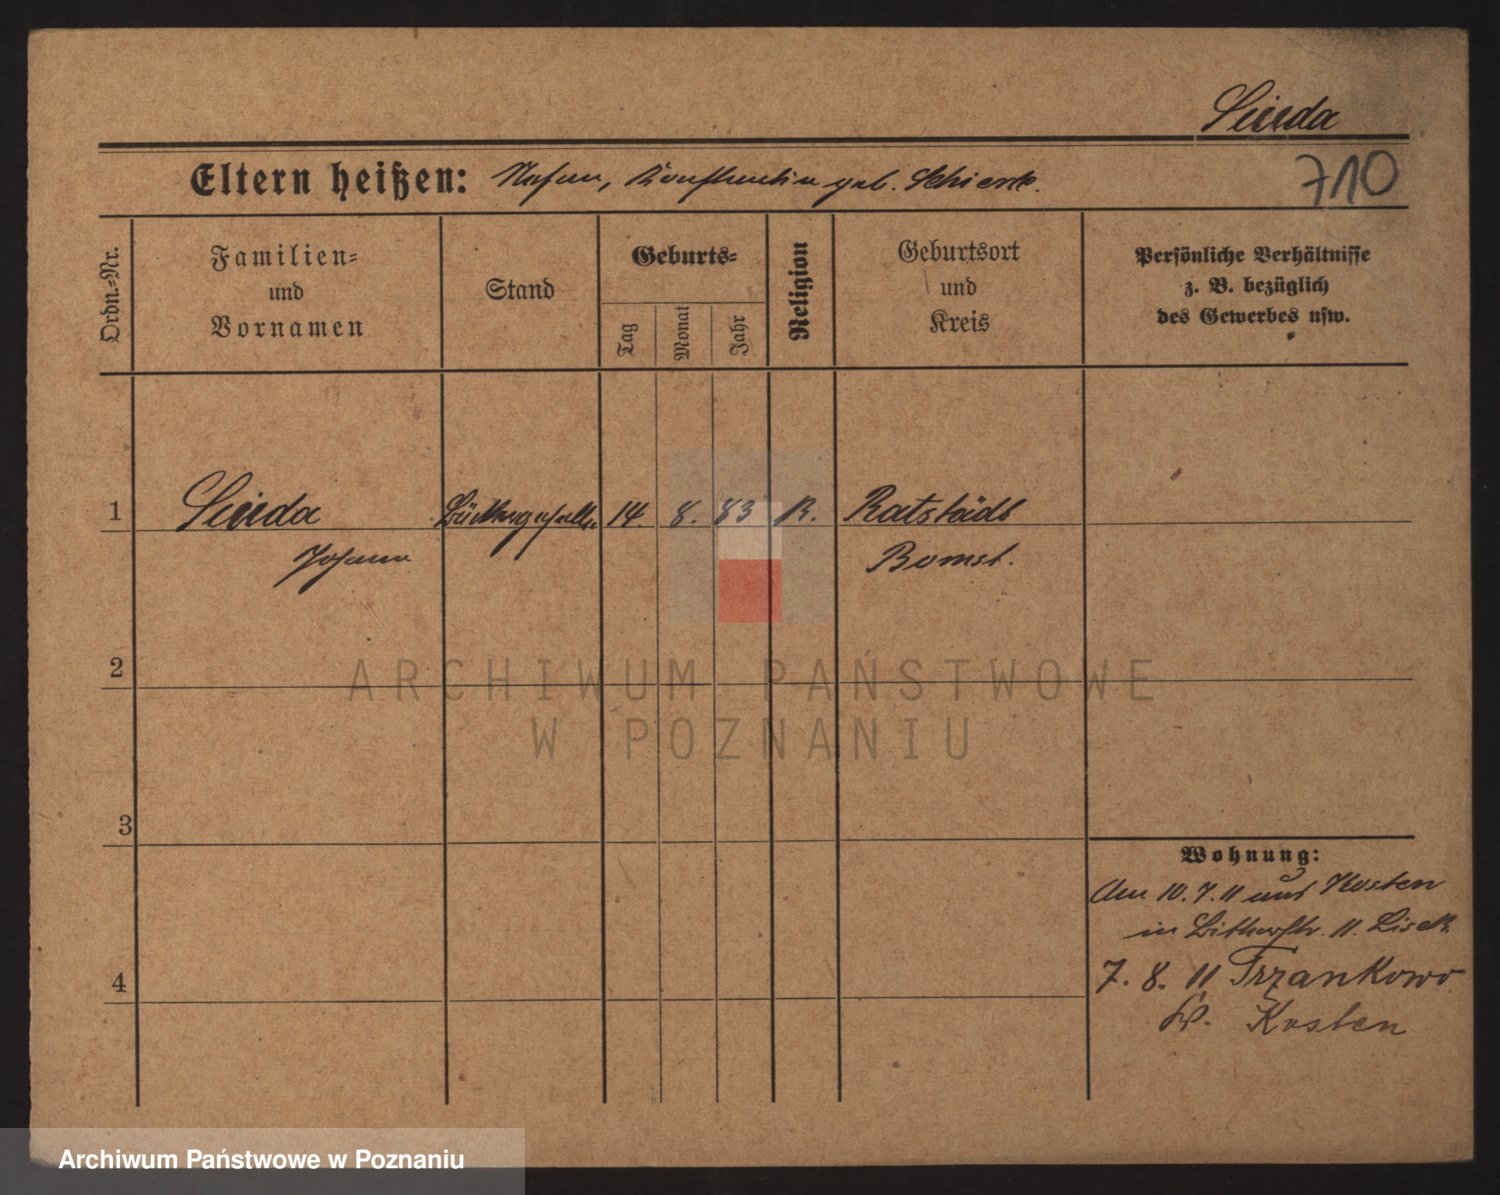 Sieda
Eltern heißen: geb. Schierk.
710
Ordn.-Nr.
Familien-
und
Vornamen
Stand
Geburts-
Tag
Monat
Jahr
Religion
Geburtsort
und
Kreis
Persönliche Verhältnisse
z. B. bezüglich
des Gewerbes usw.
1
Sieda 14 8. 83 R. Ratstädt
Johann Bomst.
2
ARCHIWUM PAŃSTWOWE
W POZNANIU
3
Wohnung:
Am 10. 7. 11 aus Kosten
in 11.
4
7. 8. 11 Trzankowo
Kosten
Archiwum Państwowe w Poznaniu